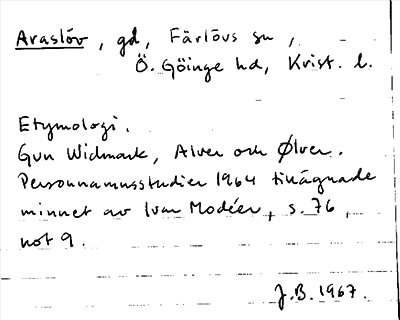 Araslöv, gd, Färlövs sn,
Ö. Göinge hd, Krist. l.
Etymologi.
Gun Widmark, Alver och Ølver.
Personnamnsstudier 1964 tillägnade
minnet av Ivar Modéer, s. 76,
not 9.
J.B. 1967.